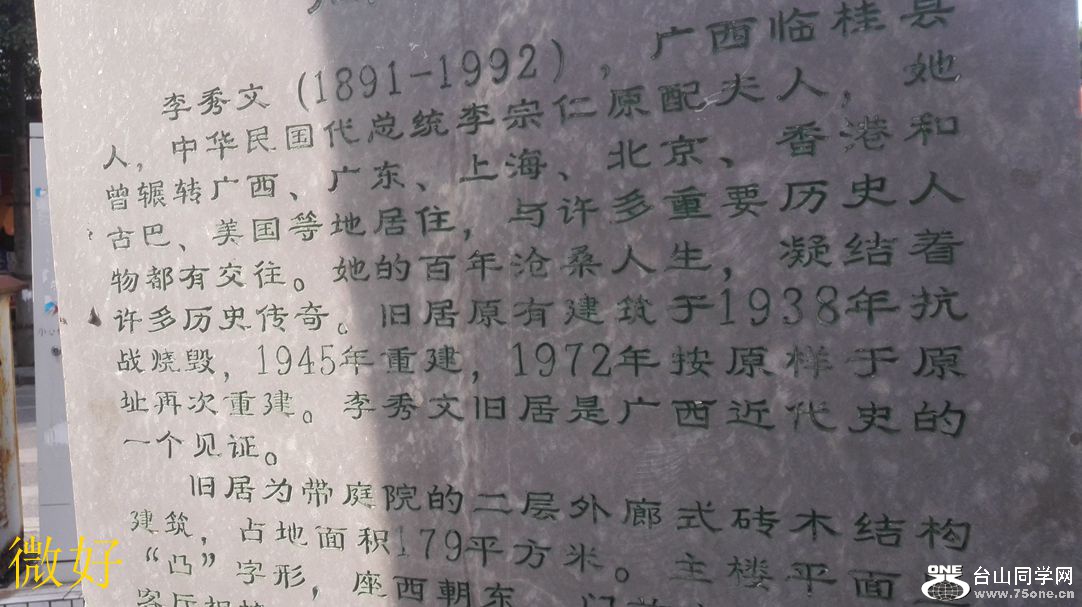 李秀文(1891-1992),广西临桂县
人,中华民国代总统李宗仁原配夫人,她
曾辗转广西、广东、上海、北京、香港和
古巴、美国等地居住,与许多重要历史人
物都有交往。她的百年沧桑人生,凝结着
许多历史传奇。旧居原有建筑于1938年抗
战烧毁,1945年重建,1972年按原样于原
址再次重建。李秀文旧居是广西近代史的
一个见证。
旧居为带庭院的二层外廊式砖木结构
建筑,占地面积179平方米。主楼平面
“凸”字形,座西朝东
微好
ONE
台山同学网
www.75one.cn